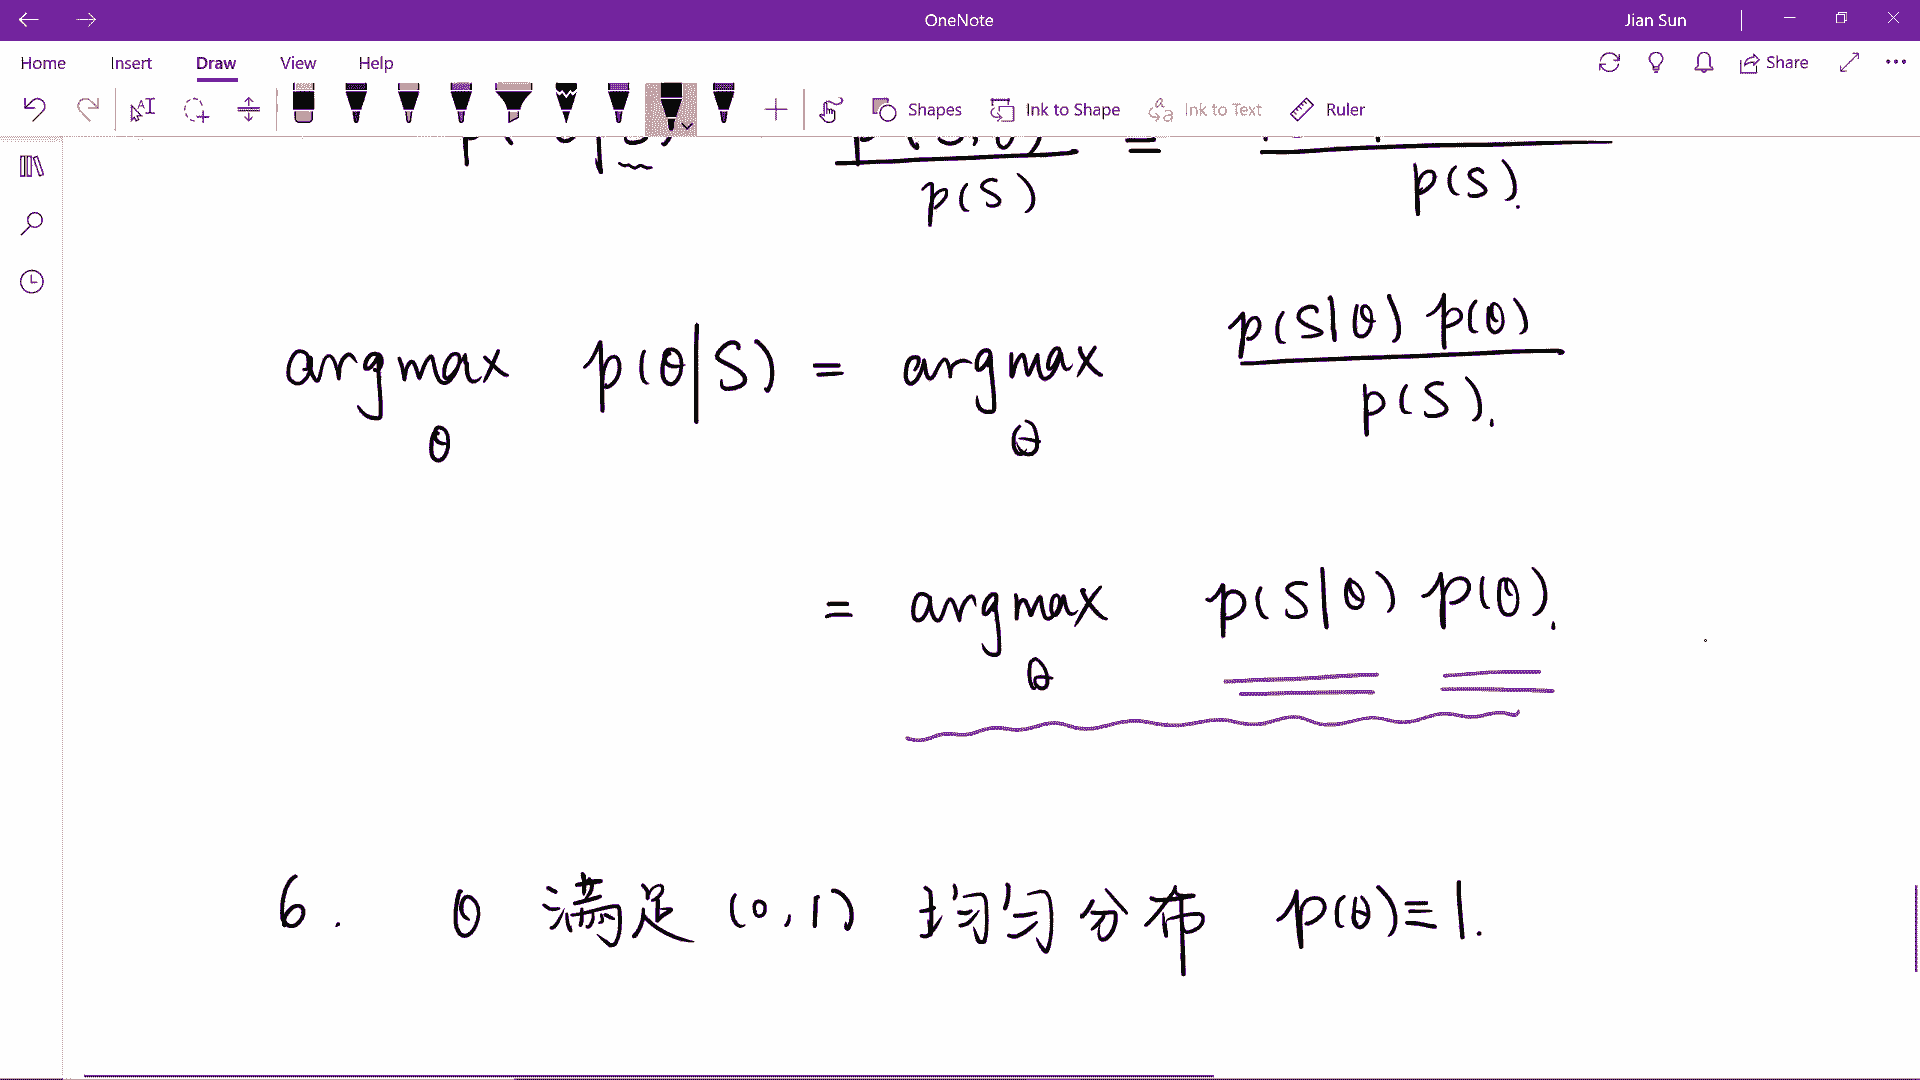 OneNote
Jian Sun
Home Insert Draw View Help
Share
Shapes Ink to Shape Ink to Text Ruler
p(S) p(S).
argmax p(θ|S) = argmax p(S|θ) p(θ)
θ θ p(S).
= argmax p(S|θ) p(θ).
θ
6. θ 满足 (0,1) 均匀分布 p(θ)≡1.